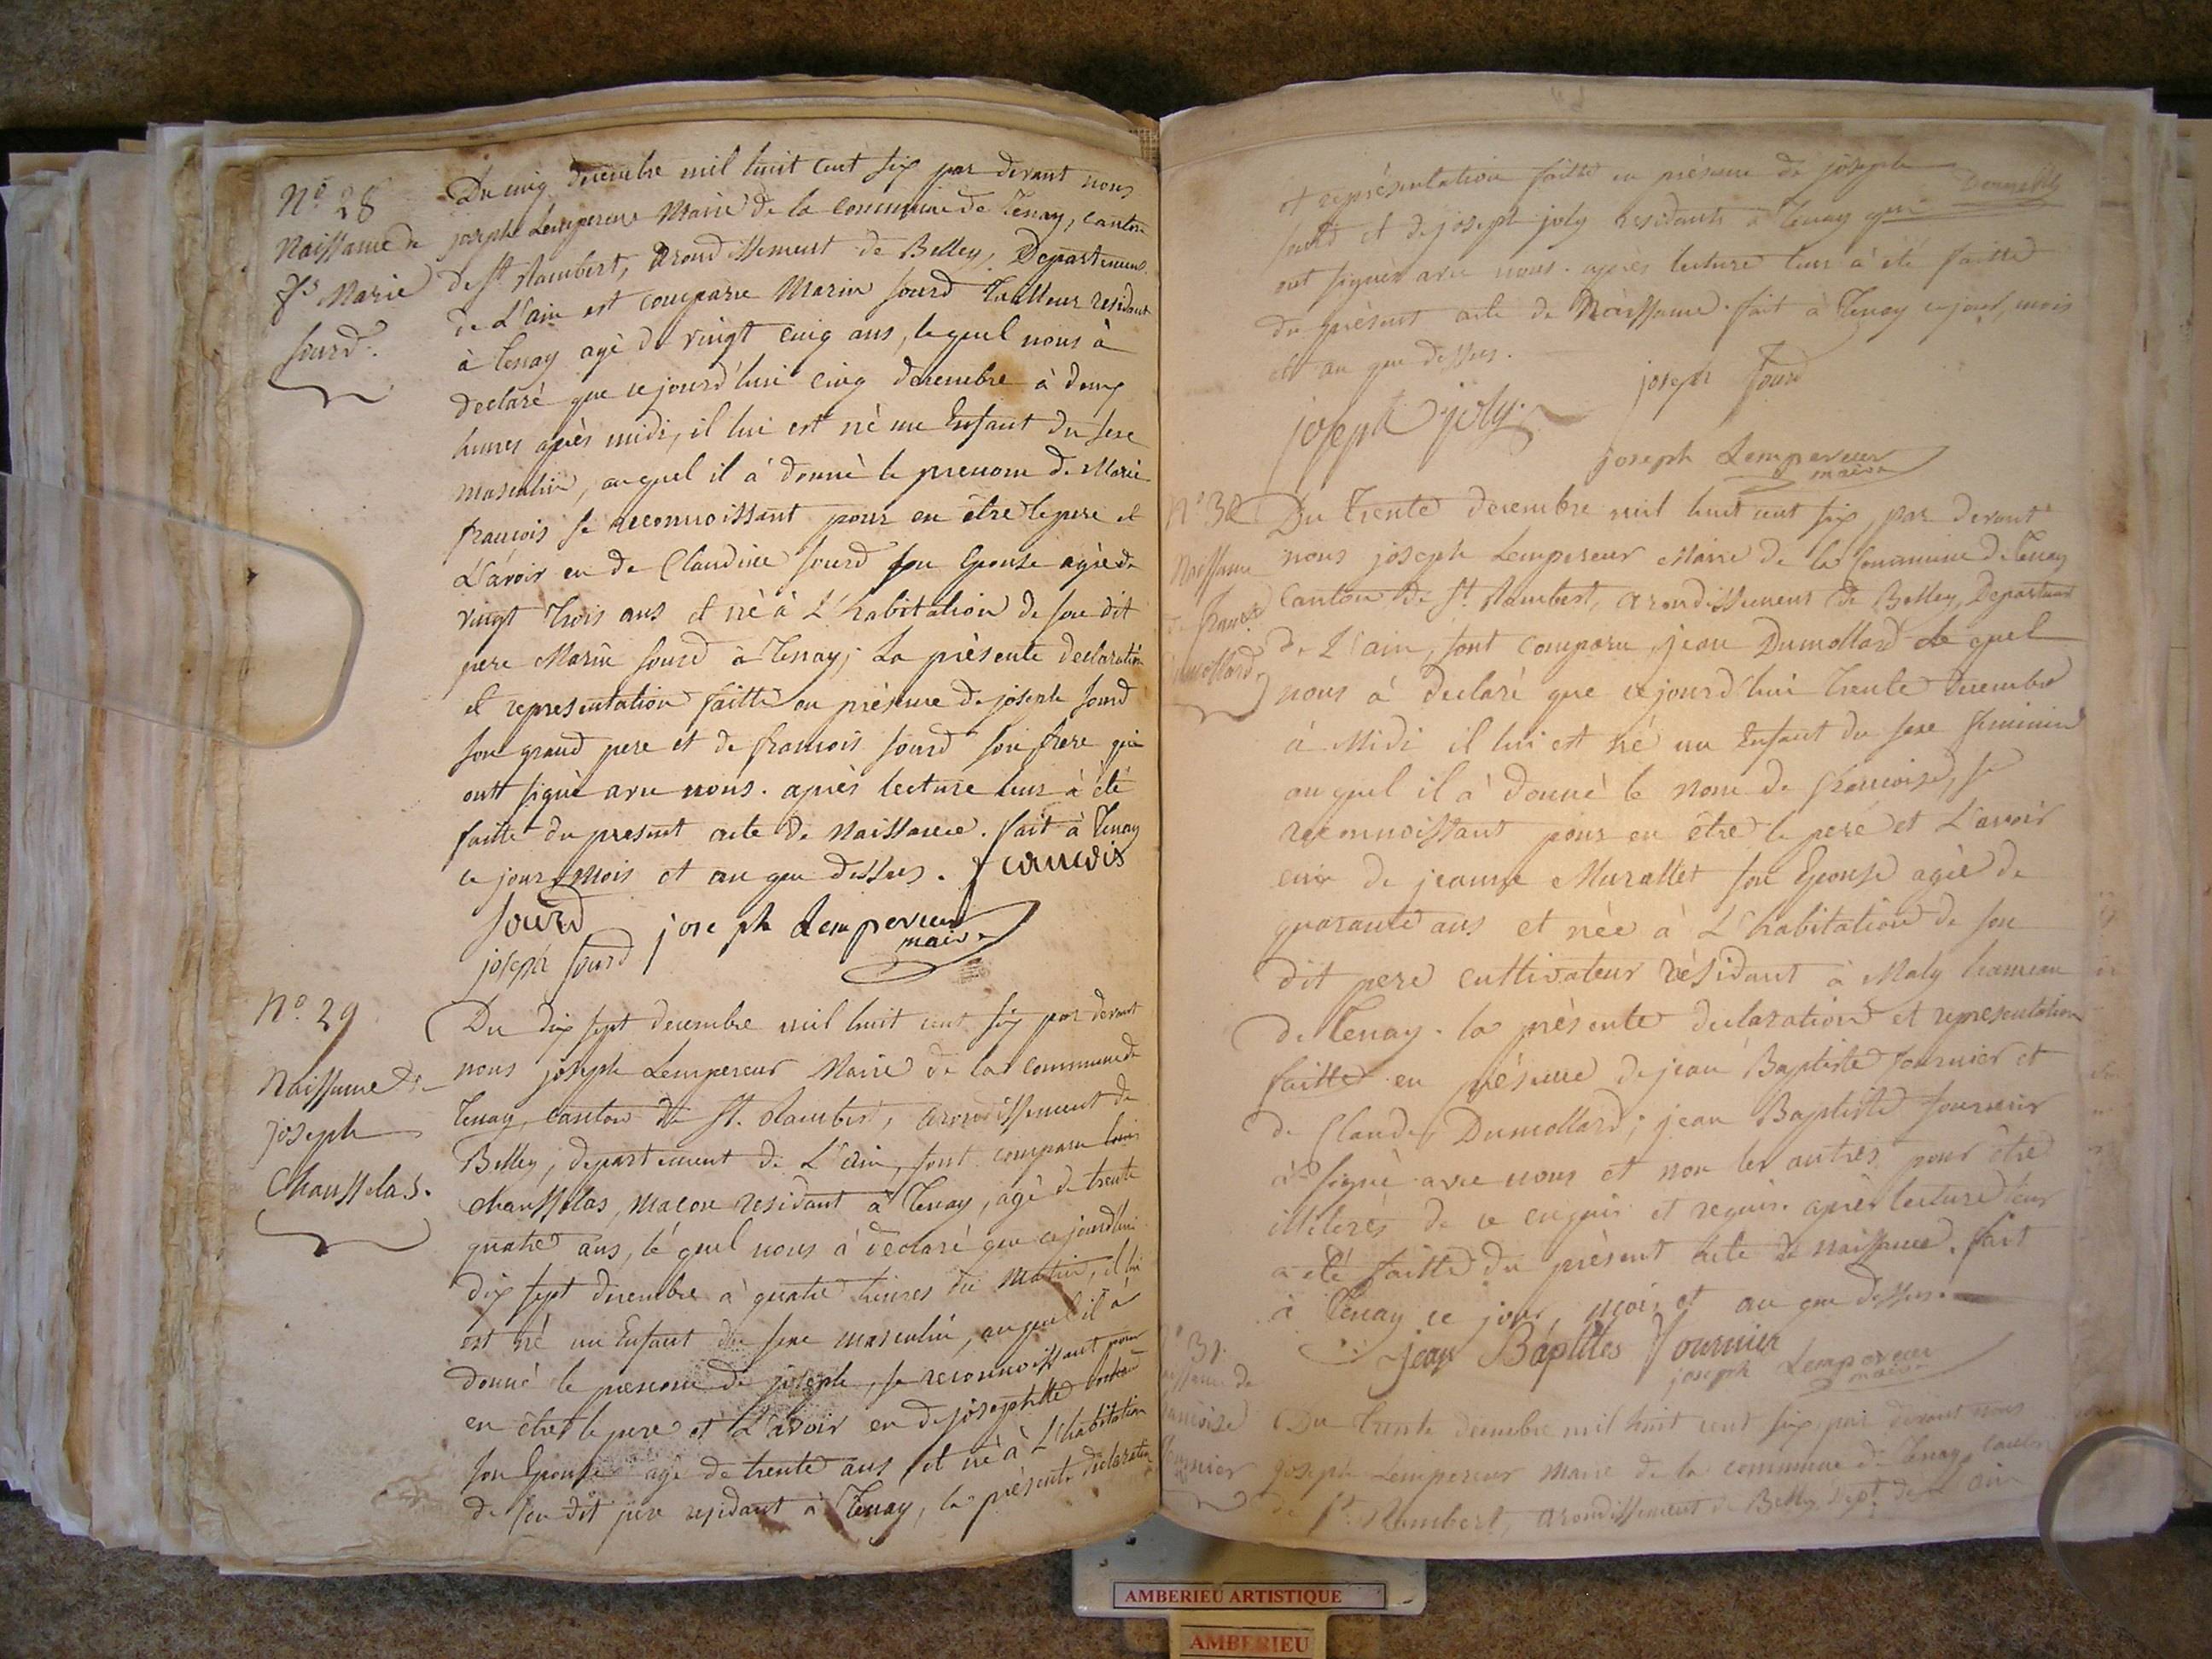 N.º 28
Naissance de
f.s Marie
Sourd.
Du cinq decembre mil huit cent six par devant nous
joseph Lempereur Maire de la commune de Tenay, canton
de St Rambert, arondissement de Belley, Departement
de L'ain est comparu Marin Sourd Tailleur résidant
à Tenay agé de vingt cinq ans, lequel nous à
declaré que cejourd'hui cinq decembre à deux
heures après midi, il lui est né un Enfant du sexe
masculin, auquel il à donné le prenom de Marie
francois se reconnoissant pour en être le pere et
L'avoir eu de Claudine Sourd son Epouse agée de
vingt trois ans et né à L'habitation de son dit
pere Marin Sourd à Tenay; La présente declaration
et representation faitte en présence de joseph Sourd
son grand pere et de francois Sourd son frere qui
ont signé avec nous. après lecture leur à été
faitte du present acte de Naissance. fait à Tenay
ce jour, mois et an que dessus. francois
Sourd joseph Lempereur
maire
joseph Sourd
N.º 29
Naissance de
joseph
Chausselas.
Du dix sept decembre mil huit cent six par devant
nous joseph Lempereur Maire de la commune de
Tenay, canton de St. Rambert, arondissement de
Belley, departement de L'ain, sont comparu louis
chausselas, macon residant à Tenay, agé de trente
quatre ans, lequel nous à declaré que cejourd'hui
dix sept decembre à quatre heures du matin, il lui
est né un Enfant du sexe masculin, auquel il à
donné le prenom de joseph, se reconnoissant pour
en être le pere et L'avoir eu de josephtte
son Epouse agé de trente ans et né à L'habitation
de son dit pere residant à Tenay, la présente déclaration
et représentation faitte en présence de joseph
Sourd et de joseph joly residants à Tenay qui
ont signés avec nous. après lecture leur à été faitte
du présent acte de Naissance. fait à Tenay ce jour, mois
et an que dessus.
joseph Sourd
joseph joly
joseph Lempereur
maire
N.º 30
Naissance
de francoise
Dumollard
Du trente decembre mil huit cent six, par devant
nous joseph Lempereur Maire de la Commune de Tenay
Canton de St. Rambert, arondissement de Belley, Departement
de L'ain, sont comparu jean Dumollard Le quel
nous à declaré que cejourd'hui trente decembre
à Midi il lui est né un Enfant du sexe feminin
auquel il à donné le nom de francoise, se
reconnoissant pour en être le pere et L'avoir
eu de jeanne Murallet son Epouse agée de
quarante ans et née à L'habitation de son
dit pere cultivateur résidant à Maly hameau
de Tenay. la présente declaration et representation
faitte en présence de jean Baptiste fournier et
de Claude Dumollard; jean Baptiste fournier
à signé avec nous et non les autres pour être
illiterés de ce enquis et requis. après lecture leur
a été faitte du présent acte de naissance. fait
à Tenay ce jour, mois et an que dessus.
jean Baptites fournier
joseph Lempereur
maire
31.
francoise
fournier
Du trente decembre mil huit cent six, par devant nous
joseph Lempereur Maire de la commune de Tenay, canton
de St. Rambert, arondissement de Belley, dept. de L'ain
AMBERIEU ARTISTIQUE
AMBERIEU